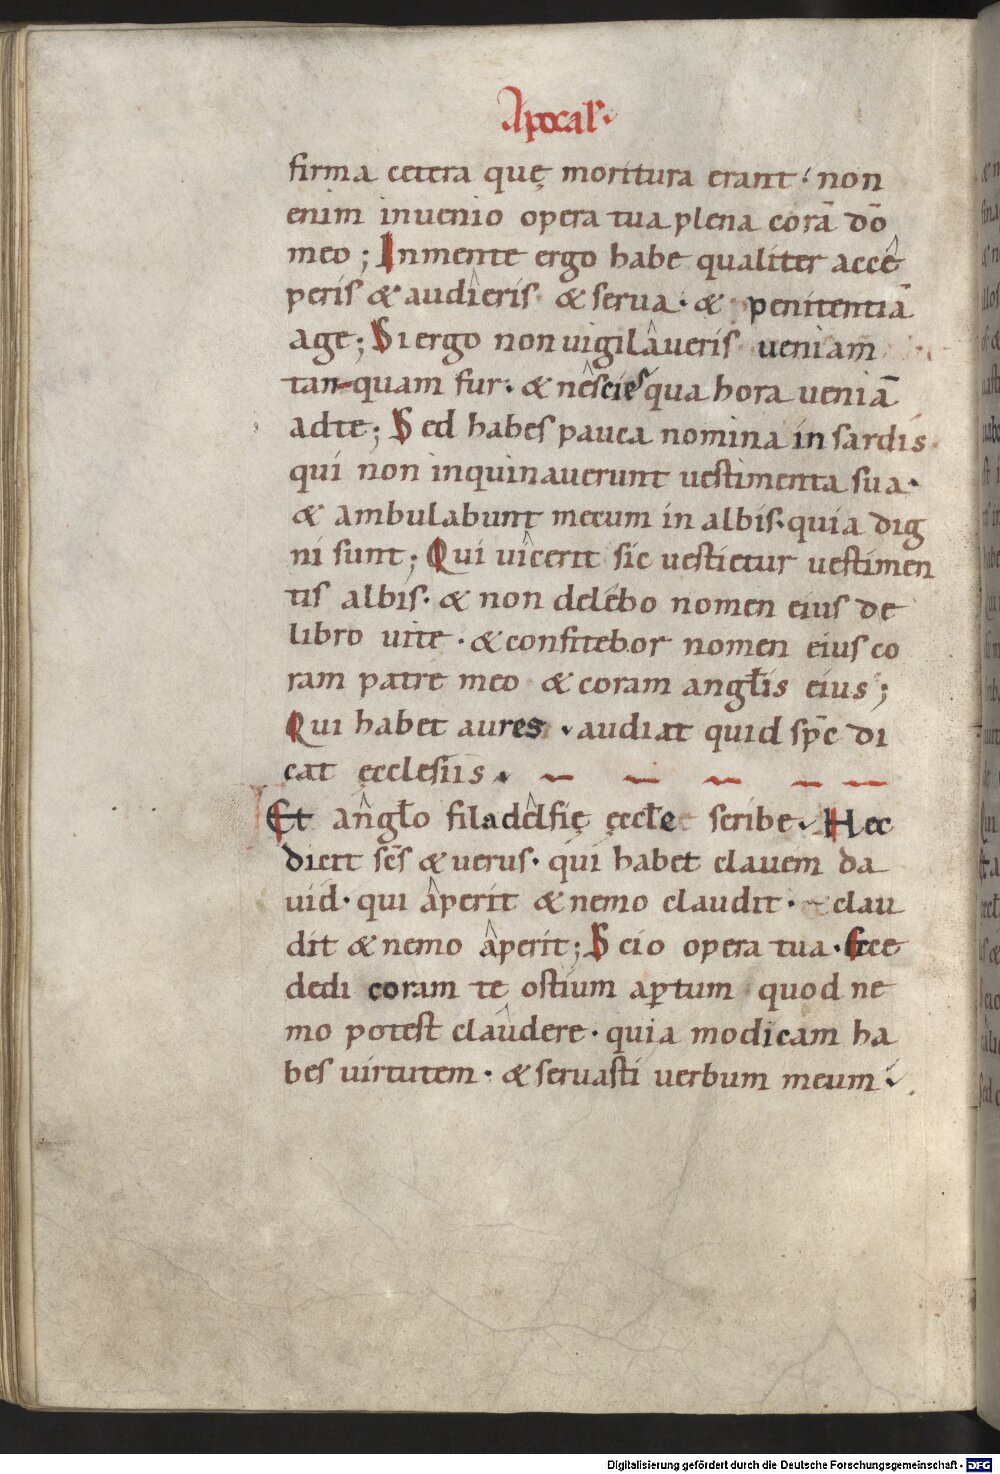 Apocal·
firma cetera quę moritura erant· non
enim invenio opera tua plena corā dō
meo ; In mente ergo habe qualiter acce
peris & audieris· & serua · & penitentiā
age ; Si ergo non uigilaueris ueniam
tanquam fur · & nescies qua hora ueniā
ad te ; Sed habes pauca nomina in sardis
qui non inquinauerunt uestimenta sua ·
& ambulabunt mecum in albis · quia dig
ni sunt ; Qui uicerit sic uestietur uestimen
tis albis · & non delebo nomen eius de
libro uite · & confitebor nomen eius co
ram patre meo & coram angłis eius ;
Qui habet aures · audiat quid sp̄c di
cat ęcclesiis ·
Et angło filadelfię ęccłe scribe · Hec
dicit sc̄s & uerus · qui habet clauem da
uid · qui aperit & nemo claudit · clau
dit & nemo aperit ; Scio opera tua · Ecce
dedi coram te ostium aꝑtum quod ne
mo potest claudere · quia modicam ha
bes uirtutem · & seruasti uerbum meum ·
Digitalisierung gefördert durch die Deutsche Forschungsgemeinschaft - DFG